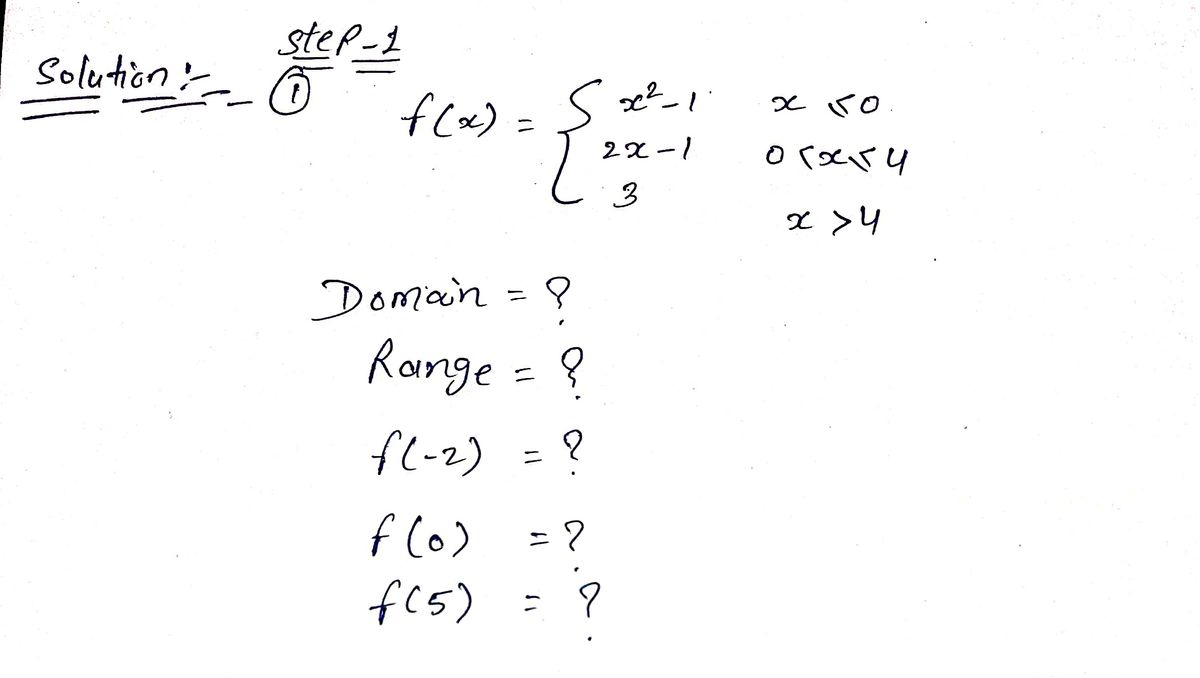 Solution:- step-1
① f(x) = { x²-1 x ≤0
2x-1 0<x≤4
3 x >4
Domain = ?
Range = ?
f(-2) = ?
f(0) = ?
f(5) = ?